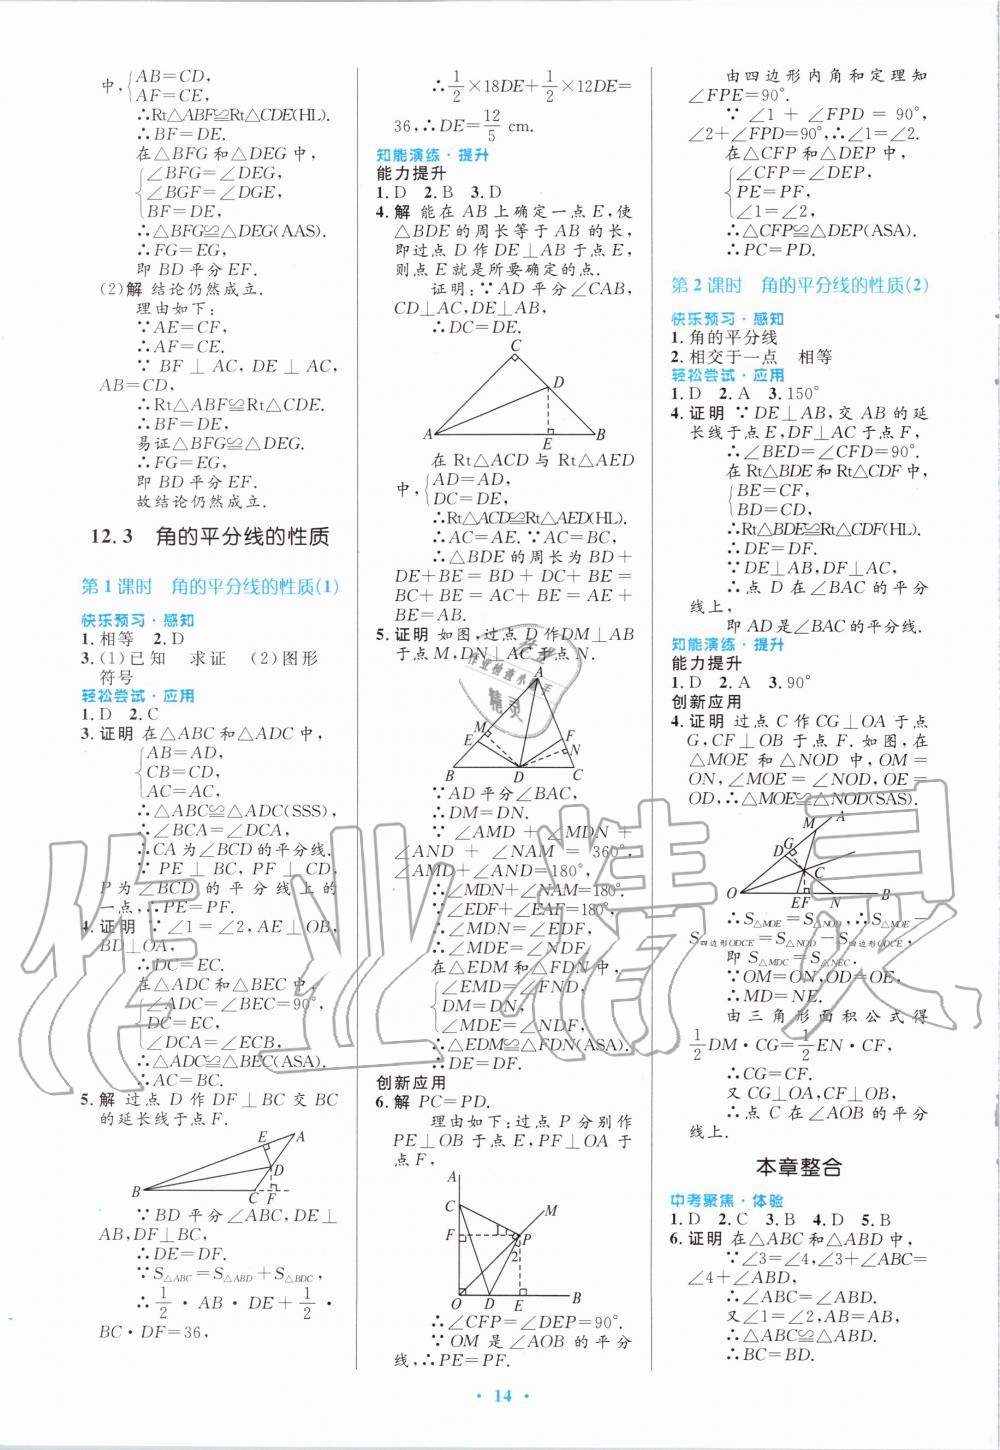 中,{AB=CD,
AF=CE,
∴Rt△ABF≌Rt△CDE(HL).
∴BF=DE.
在△BFG和△DEG中,
{∠BFG=∠DEG,
∠BGF=∠DGE,
BF=DE,
∴△BFG≌△DEG(AAS).
∴FG=EG,
即 BD平分EF.
(2)解 结论仍然成立.
理由如下:
∵AE=CF,
∴AF=CE.
∵ BF⊥AC, DE⊥AC,
AB=CD,
∴Rt△ABF≌Rt△CDE.
∴BF=DE.
易证△BFG≌△DEG.
∴FG=EG,
即 BD平分EF.
故结论仍然成立.
12.3 角的平分线的性质
第1课时 角的平分线的性质(1)
快乐预习·感知
1.相等 2.D
3.(1)已知 求证 (2)图形
符号
轻松尝试·应用
1.D 2.C
3.证明 在△ABC和△ADC中,
{AB=AD,
CB=CD,
AC=AC,
∴△ABC≌△ADC(SSS).
∴∠BCA=∠DCA,
∴CA为∠BCD的平分线.
∵ PE⊥BC, PF⊥CD,
P为∠BCD的平分线上的
一点,∴PE=PF.
4.证明 ∵∠1=∠2,AE⊥OB,
BD⊥OA,
∴DC=EC.
在△ADC和△BEC中,
{∠ADC=∠BEC=90°,
DC=EC,
∠DCA=∠ECB,
∴△ADC≌△BEC(ASA).
∴AC=BC.
5.解 过点D作DF⊥BC交BC
的延长线于点F.
A
E
D
B
C
F
∵BD平分∠ABC,DE⊥
AB,DF⊥BC,
∴DE=DF.
∵S△ABC=S△ABD+S△BDC,
∴1/2·AB·DE+1/2·
BC·DF=36,
∴1/2×18DE+1/2×12DE=
36,∴DE=12/5 cm.
知能演练·提升
能力提升
1.D 2.B 3.D
4.解 能在AB上确定一点E,使
△BDE的周长等于AB的长,
即过点D作DE⊥AB于点E,
则点E就是所要确定的点.
证明:∵AD平分∠CAB,
CD⊥AC,DE⊥AB,
∴DC=DE.
C
D
A
E
B
在Rt△ACD与Rt△AED
中,{AD=AD,
DC=DE,
∴Rt△ACD≌Rt△AED(HL).
∴AC=AE.∵AC=BC,
∴△BDE的周长为BD+
DE+BE=BD+DC+BE=
BC+BE=AC+BE=AE+
BE=AB.
5.证明 如图,过点D作DM⊥AB
于点M,DN⊥AC于点N.
A
M
E
F
N
B
D
C
∵AD平分∠BAC,
∴DM=DN.
∵∠AMD+∠MDN+
∠AND+∠MAN=360°,
∠AMD+∠AND=180°,
∴∠MDN+∠MAN=180°.
∵∠EDF+∠EAF=180°,
∴∠MDN=∠EDF,
∴∠MDE=∠NDF.
在△EDM和△FDN中,
{∠EMD=∠FND,
DM=DN,
∠MDE=∠NDF,
∴△EDM≌△FDN(ASA).
∴DE=DF.
创新应用
6.解 PC=PD.
理由如下:过点P分别作
PE⊥OB于点E,PF⊥OA于
点F,
A
C
M
F
1
P
2
O
D
E
B
∴∠CFP=∠DEP=90°.
∵OM是∠AOB的平分
线,∴PE=PF.
由四边形内角和定理知
∠FPE=90°.
∵∠1+∠FPD=90°,
∠2+∠FPD=90°,∴∠1=∠2.
在△CFP和△DEP中,
{∠CFP=∠DEP,
PE=PF,
∠1=∠2,
∴△CFP≌△DEP(ASA).
∴PC=PD.
第2课时 角的平分线的性质(2)
快乐预习·感知
1.角的平分线
2.相交于一点 相等
轻松尝试·应用
1.D 2.A 3.150°
4.证明 ∵DE⊥AB,交AB的延
长线于点E,DF⊥AC于点F,
∴∠BED=∠CFD=90°.
在Rt△BDE和Rt△CDF中,
{BE=CF,
BD=CD,
∴Rt△BDE≌Rt△CDF(HL).
∴DE=DF.
∵DE⊥AB,DF⊥AC,
∴点D在∠BAC的平分
线上,
即AD是∠BAC的平分线.
知能演练·提升
能力提升
1.D 2.A 3.90°
创新应用
4.证明 过点C作CG⊥OA于点
G,CF⊥OB于点F.如图,在
△MOE和△NOD中,OM=
ON,∠MOE=∠NOD,OE=
OD,∴△MOE≌△NOD(SAS).
A
M
G
D
C
O
EF
N
B
∴S△MDE=S△NOD,∴S△MOE-
S四边形ODCE=S△NOD-S四边形ODCE,
即S△MDC=S△NEC.
∵OM=ON,OD=OE,
∴MD=NE.
由三角形面积公式得
1/2DM·CG=1/2EN·CF,
∴CG=CF.
又CG⊥OA,CF⊥OB,
∴点C在∠AOB的平分
线上.
本章整合
中考聚焦·体验
1.D 2.C 3.B 4.D 5.B
6.证明 在△ABC和△ABD中,
∵∠3=∠4,∠3+∠ABC=
∠4+∠ABD,
∴∠ABC=∠ABD.
又∠1=∠2,AB=AB,
∴△ABC≌△ABD.
∴BC=BD.
·14·
作业精灵
作业检查小精灵